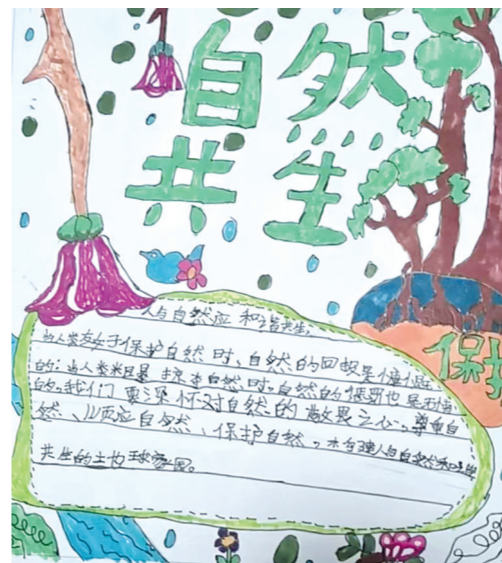 自然
共生
人与自然应和谐共生。
当人类友好保护自然时,自然的回报是慷慨
的;当人类粗暴掠夺自然时,自然的惩罚也是无情
的。我们要深怀对自然的敬畏之心,尊重自
然、顺应自然、保护自然,构建人与自然和谐
共生的地球家园。
保护